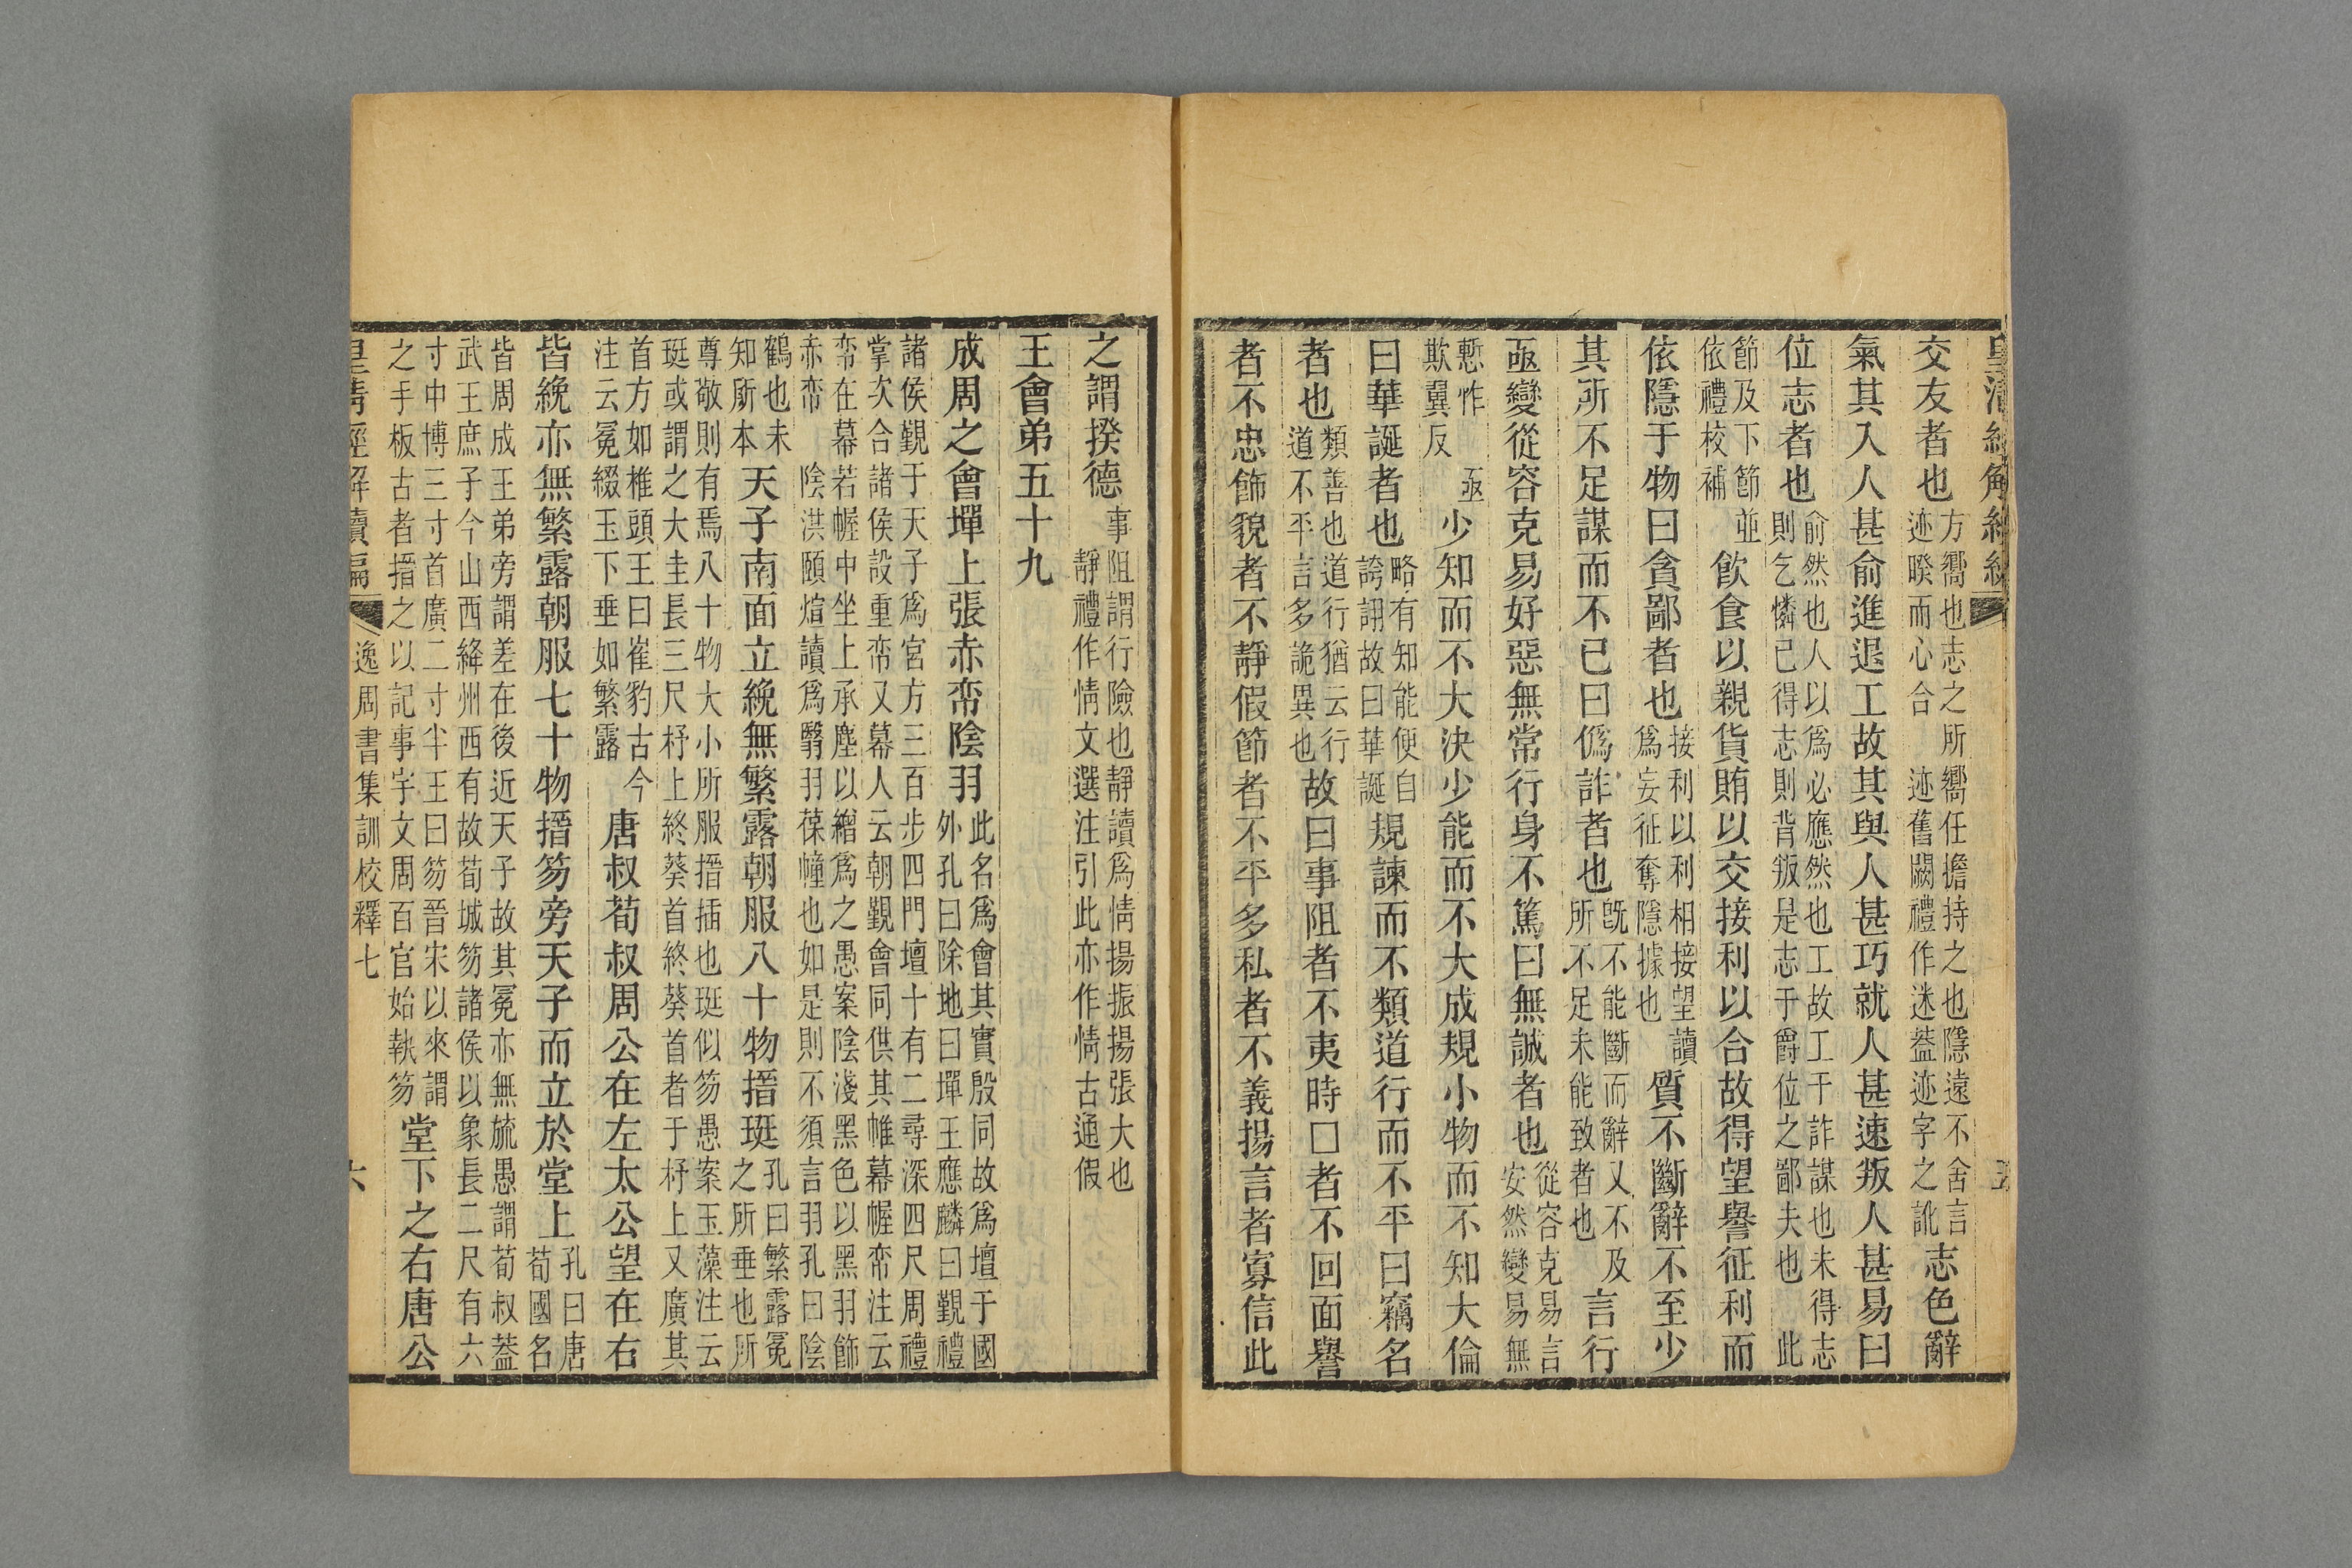 交友者也方嚮也志之所嚮任擔持之也隱遠不舍言
迹暌而心合　迹舊闕禮作迷葢迹字之訛志色辭
氣其入人甚俞進退工故其與人甚巧就人甚速叛人甚易曰
位志者也俞然也人以爲必應然也工故工于詐謀也未得志
則乞憐已得志則背叛是志于爵位之鄙夫也　此
節及下節並
依禮校補飮食以親貨賄以交接利以合故得望譽征利而
依隱于物曰貪鄙者也接利以利相接望讀
爲妄征奪隱據也質不斷辭不至少
其所不足謀而不已曰僞詐者也旣不能斷而辭又不及
所不足未能致者也言行
亟變從容克易好惡無常行身不篤曰無誠者也從容克易言
安然變易無
慙怍　亟
欺翼反少知而不大決少能而不大成規小物而不知大倫
曰華誕者也略有知能便自
誇詡故曰華誕規諫而不類道行而不平曰竊名
者也類善也道行猶云行
道不平言多詭異也故曰事阻者不夷時□者不回面譽
者不忠飾貌者不靜假節者不平多私者不義揚言者寡信此
之謂揆德事阻謂行險也靜讀爲情揚振揚張大也
靜禮作情文選注引此亦作情古通假
王會弟五十九
成周之會墠上張赤帟陰羽此名爲會其實殷同故爲壇于國
外孔曰除地曰墠王應麟曰覲禮
諸侯覲于天子爲宮方三百步四門壇十有二尋深四尺周禮
掌次合諸侯設重帟又幕人云朝覲會同供其帷幕幄帟注云
帟在幕若幄中坐上承塵以繒爲之愚案陰淺黑色以黑羽飾
赤帟　陰洪頤煊讀爲翳羽葆幢也如是則不須言羽孔曰陰
鶴也未
知所本天子南面立絻無繁露朝服八十物搢珽孔曰繁露冕
之所垂也所
尊敬則有焉八十物大小所服搢插也珽似笏愚案玉藻注云
珽或謂之大圭長三尺杼上終葵首終葵首者于杼上又廣其
首方如椎頭王曰崔豹古今
注云冕綴玉下垂如繁露唐叔荀叔周公在左太公望在右
皆絻亦無繁露朝服七十物搢笏旁天子而立於堂上孔曰唐
荀國名
皆周成王弟旁謂差在後近天子故其冕亦無旒愚謂荀叔葢
武王庶子今山西絳州西有故荀城笏諸侯以象長二尺有六
寸中博三寸首廣二寸半王曰笏晉宋以來謂
之手板古者搢之以記事字文周百官始執笏堂下之右唐公
皇清經解續編　逸周書集訓校釋七　六